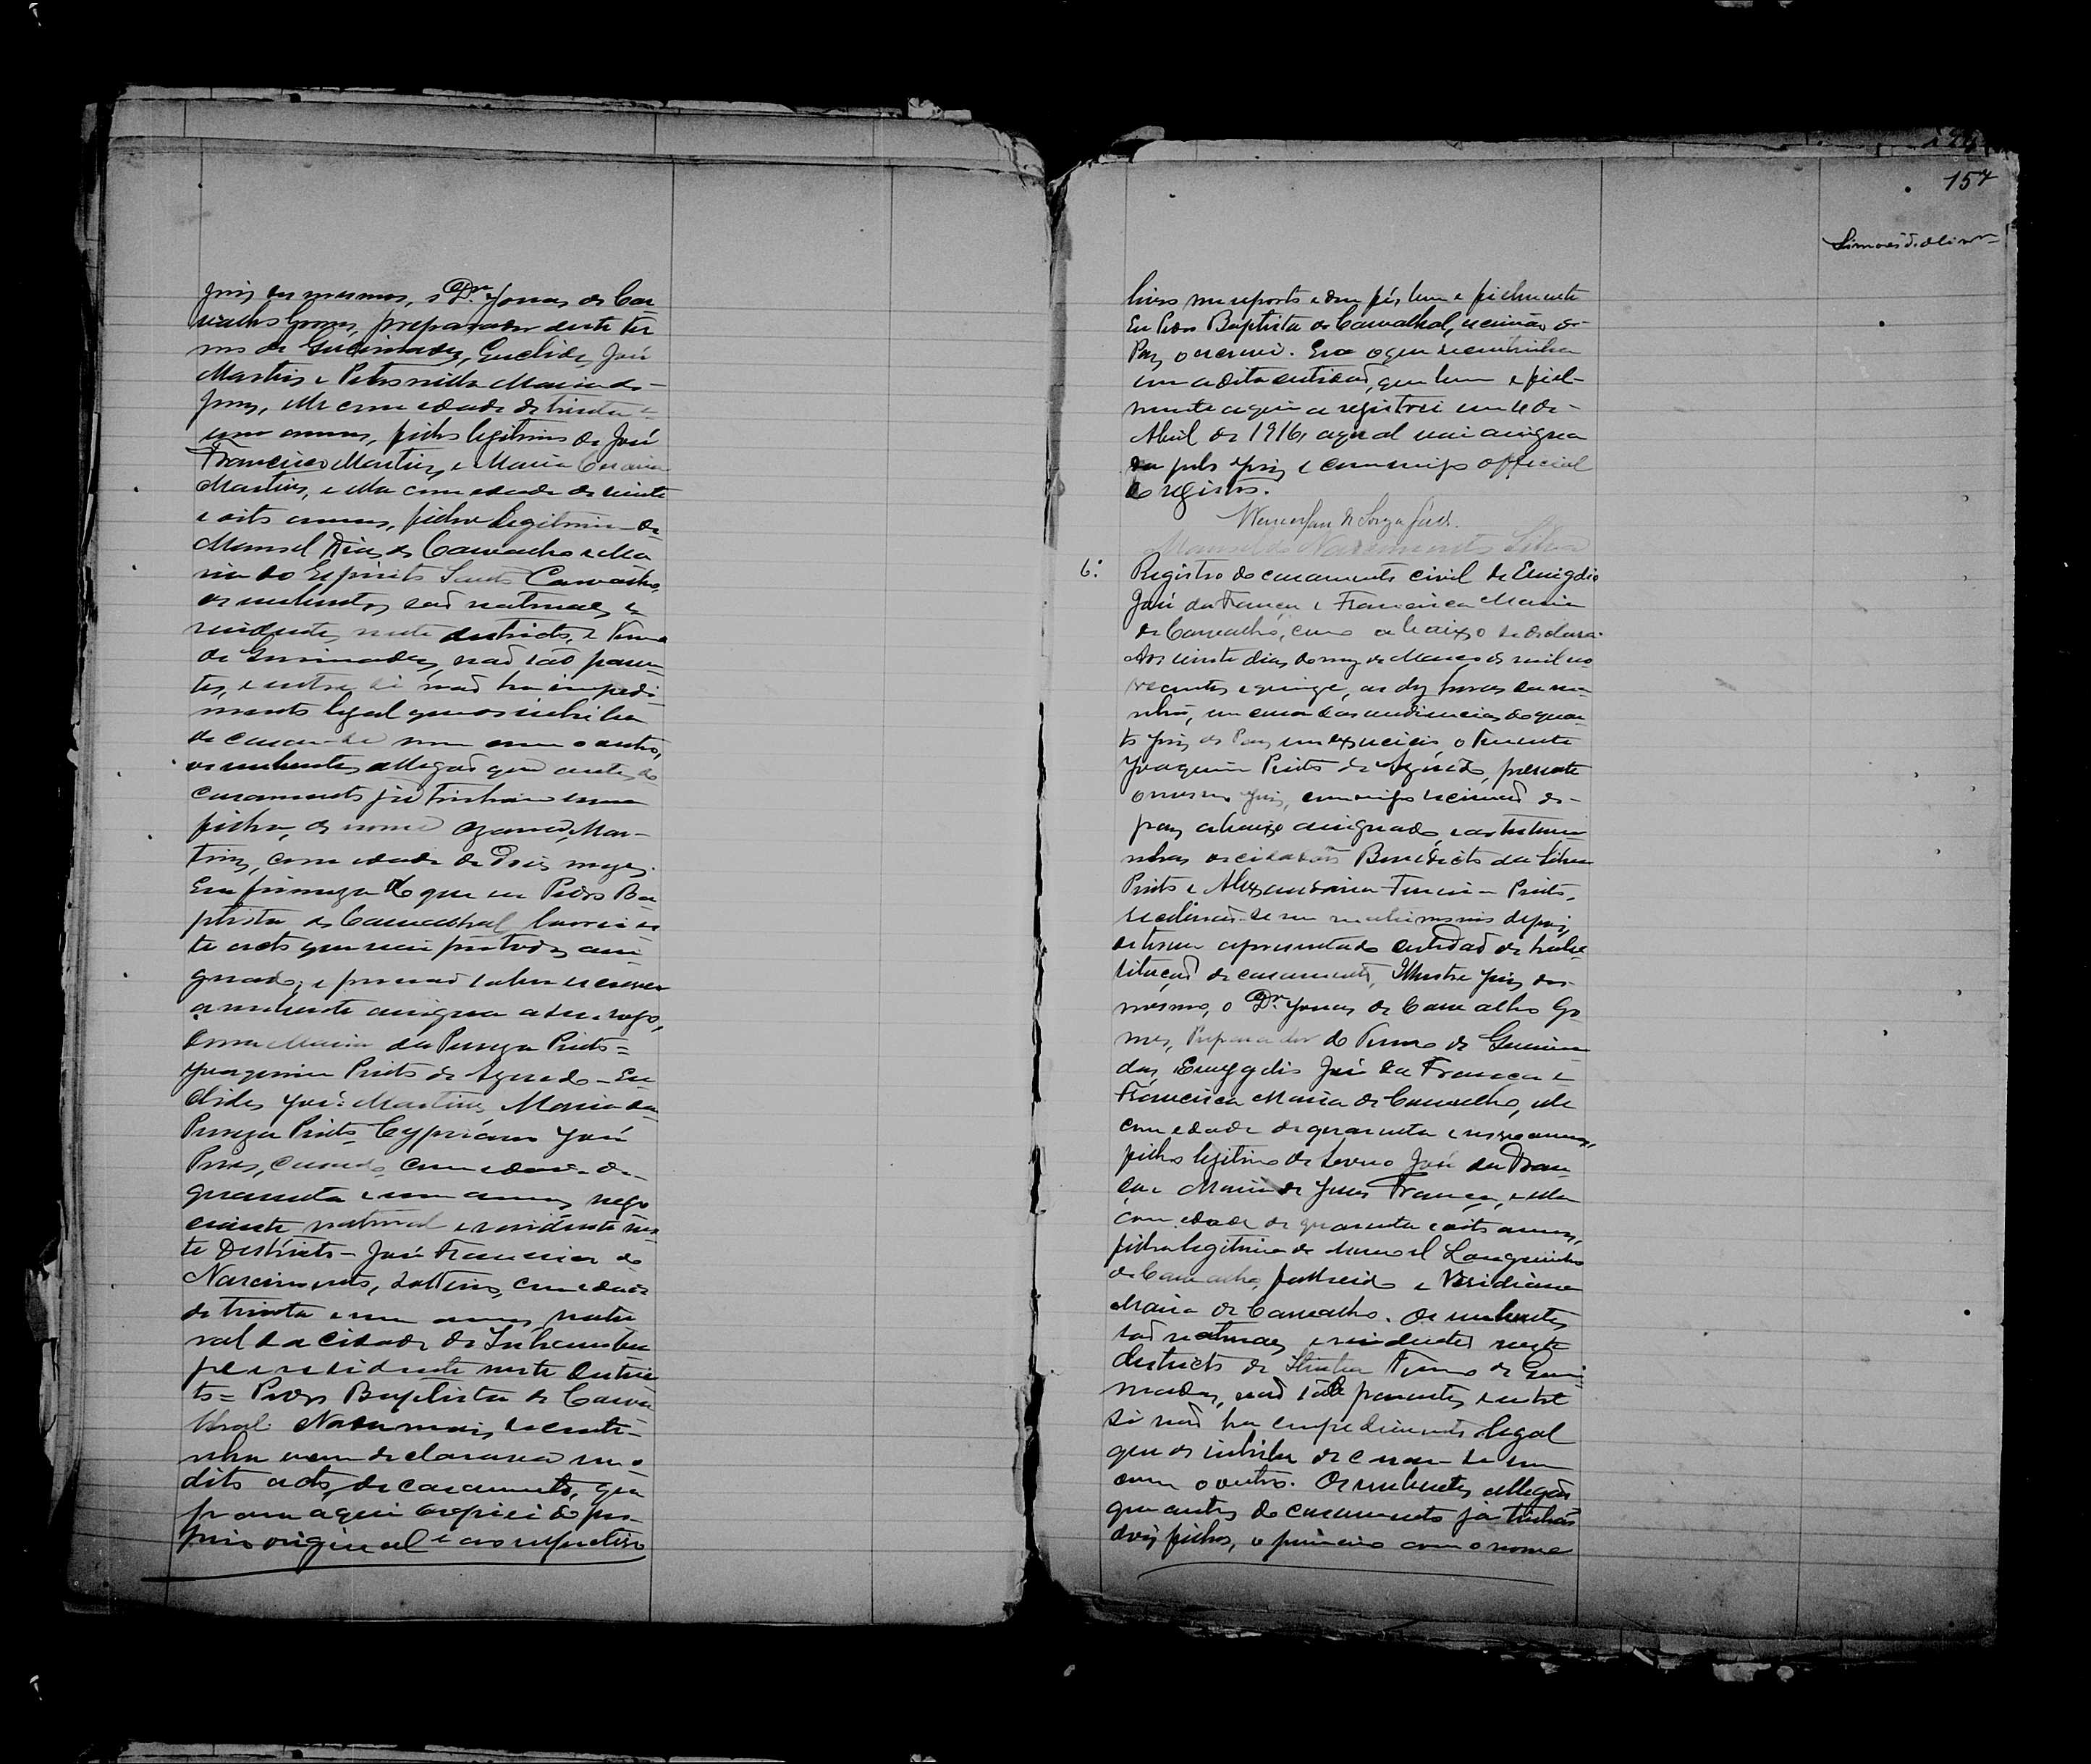 Juiz dos mesmos, o Dr. Jonas de Car
valho Gomes, preparador deste ter
mo de Queimadas, Euclides José
Martins e Petronilla Maria de
Jesus, elle com edade de trinta e
um annos, filho legitimo de José
Francisco Martins e Maria
Martins, e ella com edade de vinte
e oito annos, filha legitima de
Manoel Dias de Carvalho e Ma
ria do Espirito Santo Carvalho,
os nubentes são naturaes e
residentes neste districto, e Termo
de Queimadas, não são paren
tes, e entre si não ha impedi
mento legal que os inhiba
de casar-se um com o outro,
os nubentes allegão que antes do
casamento já tinhão uma
filha, de nome Mar-
tins, com edade de dois mezes.
Em firmeza do que eu Pedro Ba
ptista de Carvalhal lavrei es
te acto que vai por todos assi
gnado; e por não saber escrever
a nubente assigna a seu rogo,
Dona Maria da Pureza Pinto =
Joaquim Pinto de Azevedo - Eu
clides José Martins Maria da
Pureza Pinto Cypriano José
Pires, casado com edade de
quarenta e um annos, nego
ciante natural e residente nes
te Districto - José Francisco do
Nascimento, solteiro, com edade
de trinta e um annos, natu
ral da cidade de Inhambu
pe e residente neste Distric
to = Pedro Baptista de Carva
lhal. Nada mais se conti-
nha nem declarava em o
dito acto de casamento, que
para aqui copiei do pro-
prio original e ao respectivo
157
livro me reporto e dou fé, bem e fielmente
Eu Pedro Baptista de Carvalhal, escrivão de
Paz o escrevi. Era o que se continha
em a dita certidão, que bem e fiel-
mente aqui a registrei em de
Abril de 1916, a qual vai assigna
da pelo Juiz e commigo official
do registro.
Manoel do Nascimento Silva
6º
Registro do casamento civil de Emigdio
José da França e Francisca Maria
de Carvalho, como abaixo se declara.
Aos vinte dias do mez de Março de mil no
vecentos e quinze, as dez horas da ma
nhã, em casa das audiencias do quar
to Juiz de Paz em exercicio, o Tenente
Joaquim Pinto de Azevedo, presente
o mesmo Juiz, commigo escrivão de
paz abaixo assignado e as testemu
nhas os cidadãos Benedicto da Silva
Pinto e Alexandrina Pinto,
receberão-se em matrimonio depois
de terem apresentado certidão de habi
litação de casamento, Illustre Juiz dos
mesmo, o Dr. Jonas de Carvalho Go
mes, Preparador do Termo de Queima
das, Emygdio José da França e
Francisca Maria de Carvalho, elle
com edade de quarenta e nove annos,
filho legitimo de José da Fran
ça e Maria de Jesus França, e ella
com edade de quarenta e oito annos,
filha legitima de Manoel Longuinho
de Carvalho, fallecido e Viridiana
Maria de Carvalho. Os nubentes
são naturaes e residentes neste
districto de Itiuba Termo de Quei
madas, não são parentes, e entre
si não ha impedimento legal
que os inhiba de casar-se um
com o outro. Os nubentes allegão
que antes do casamento já tinhão
dois filhos, o primeiro com o nome